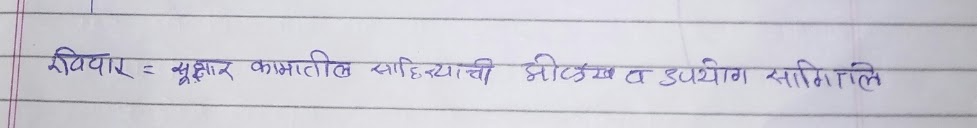 रविवार = सूतार कामातील साहित्याची ओळख व उपयोग सांगितले